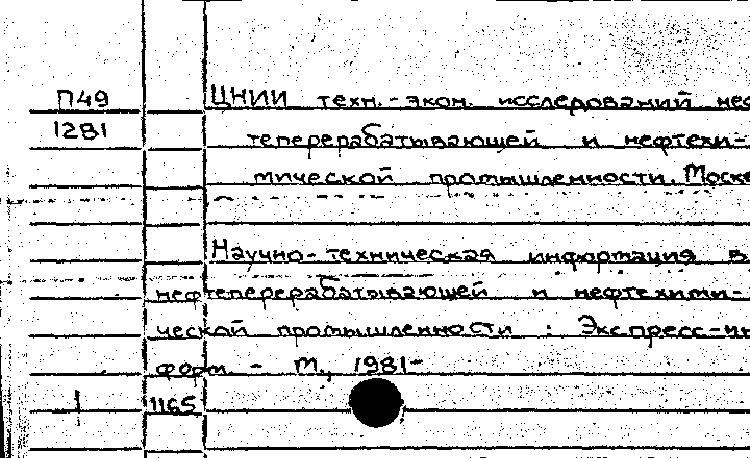 П49 ЦНИИ техн.-экон. исследований неф
1281 теперерабатывающей и нефтехи-
мической промышленности. Москв
Научно-техническая информация в
нефтеперерабатывающей и нефтехими-
ческой промышленности : Экспресс-ин
форм. - М., 1981-
1165